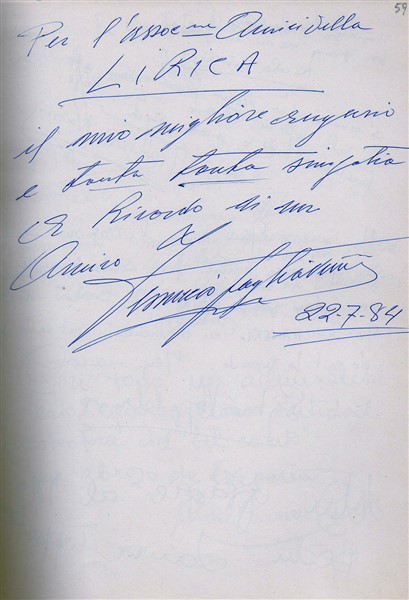 59
Per l'assoc ne Amici della
LIRICA
il mio migliore augurio
e tanta tanta simpatia
Ricordo di un
Amico
Ferruccio Tagliavini
22-7-84